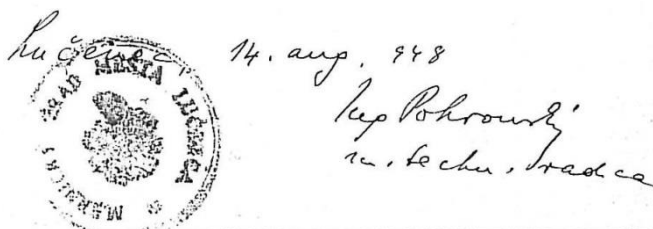 Lučenec, 14. aug. 948
Ing Pokrowský
m. techn. radca
MERNICKÝ ÚRAD MESTA LUČENCA